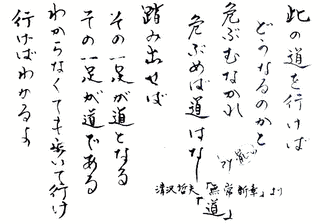 此の道を行けば
どうなるのかと
危ぶむなかれ
危ぶめば道はなし
踏み出せば
その一足が道となる
その一足が道である
わからなくても歩いて行け
行けばわかるよ
清沢哲夫「無常断章」より
「道」